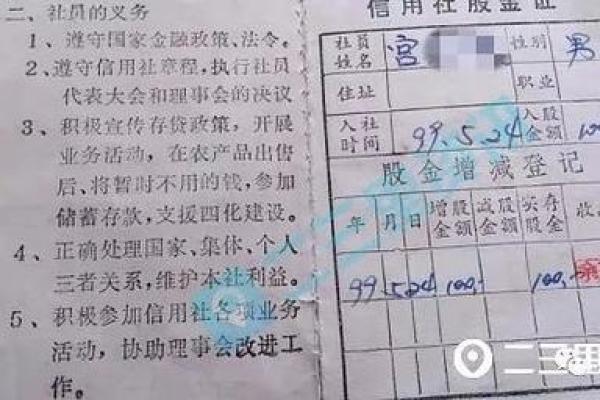 二、社员的义务
1、遵守国家金融政策、法令。
2、遵守信用社章程，执行社员
代表大会和理事会的决议
3、积极宣传存贷政策，开展
业务活动，在农产品出售
后、将暂时不用的钱，参加
储蓄存款，支援四化建设。
4、正确处理国家、集体、个人
三者关系，维护本社利益。
5、积极参加信用社各项业务
活动，协助理事会改进工
作。
信用社股金证
社员姓名 宫 性别 男
住址 职业
入社时间 99.5.24 入股金额
股金增减登记
年 月 日 增股金额 减股金额 实存股金
99.5.24 100,- 100,-
二三里